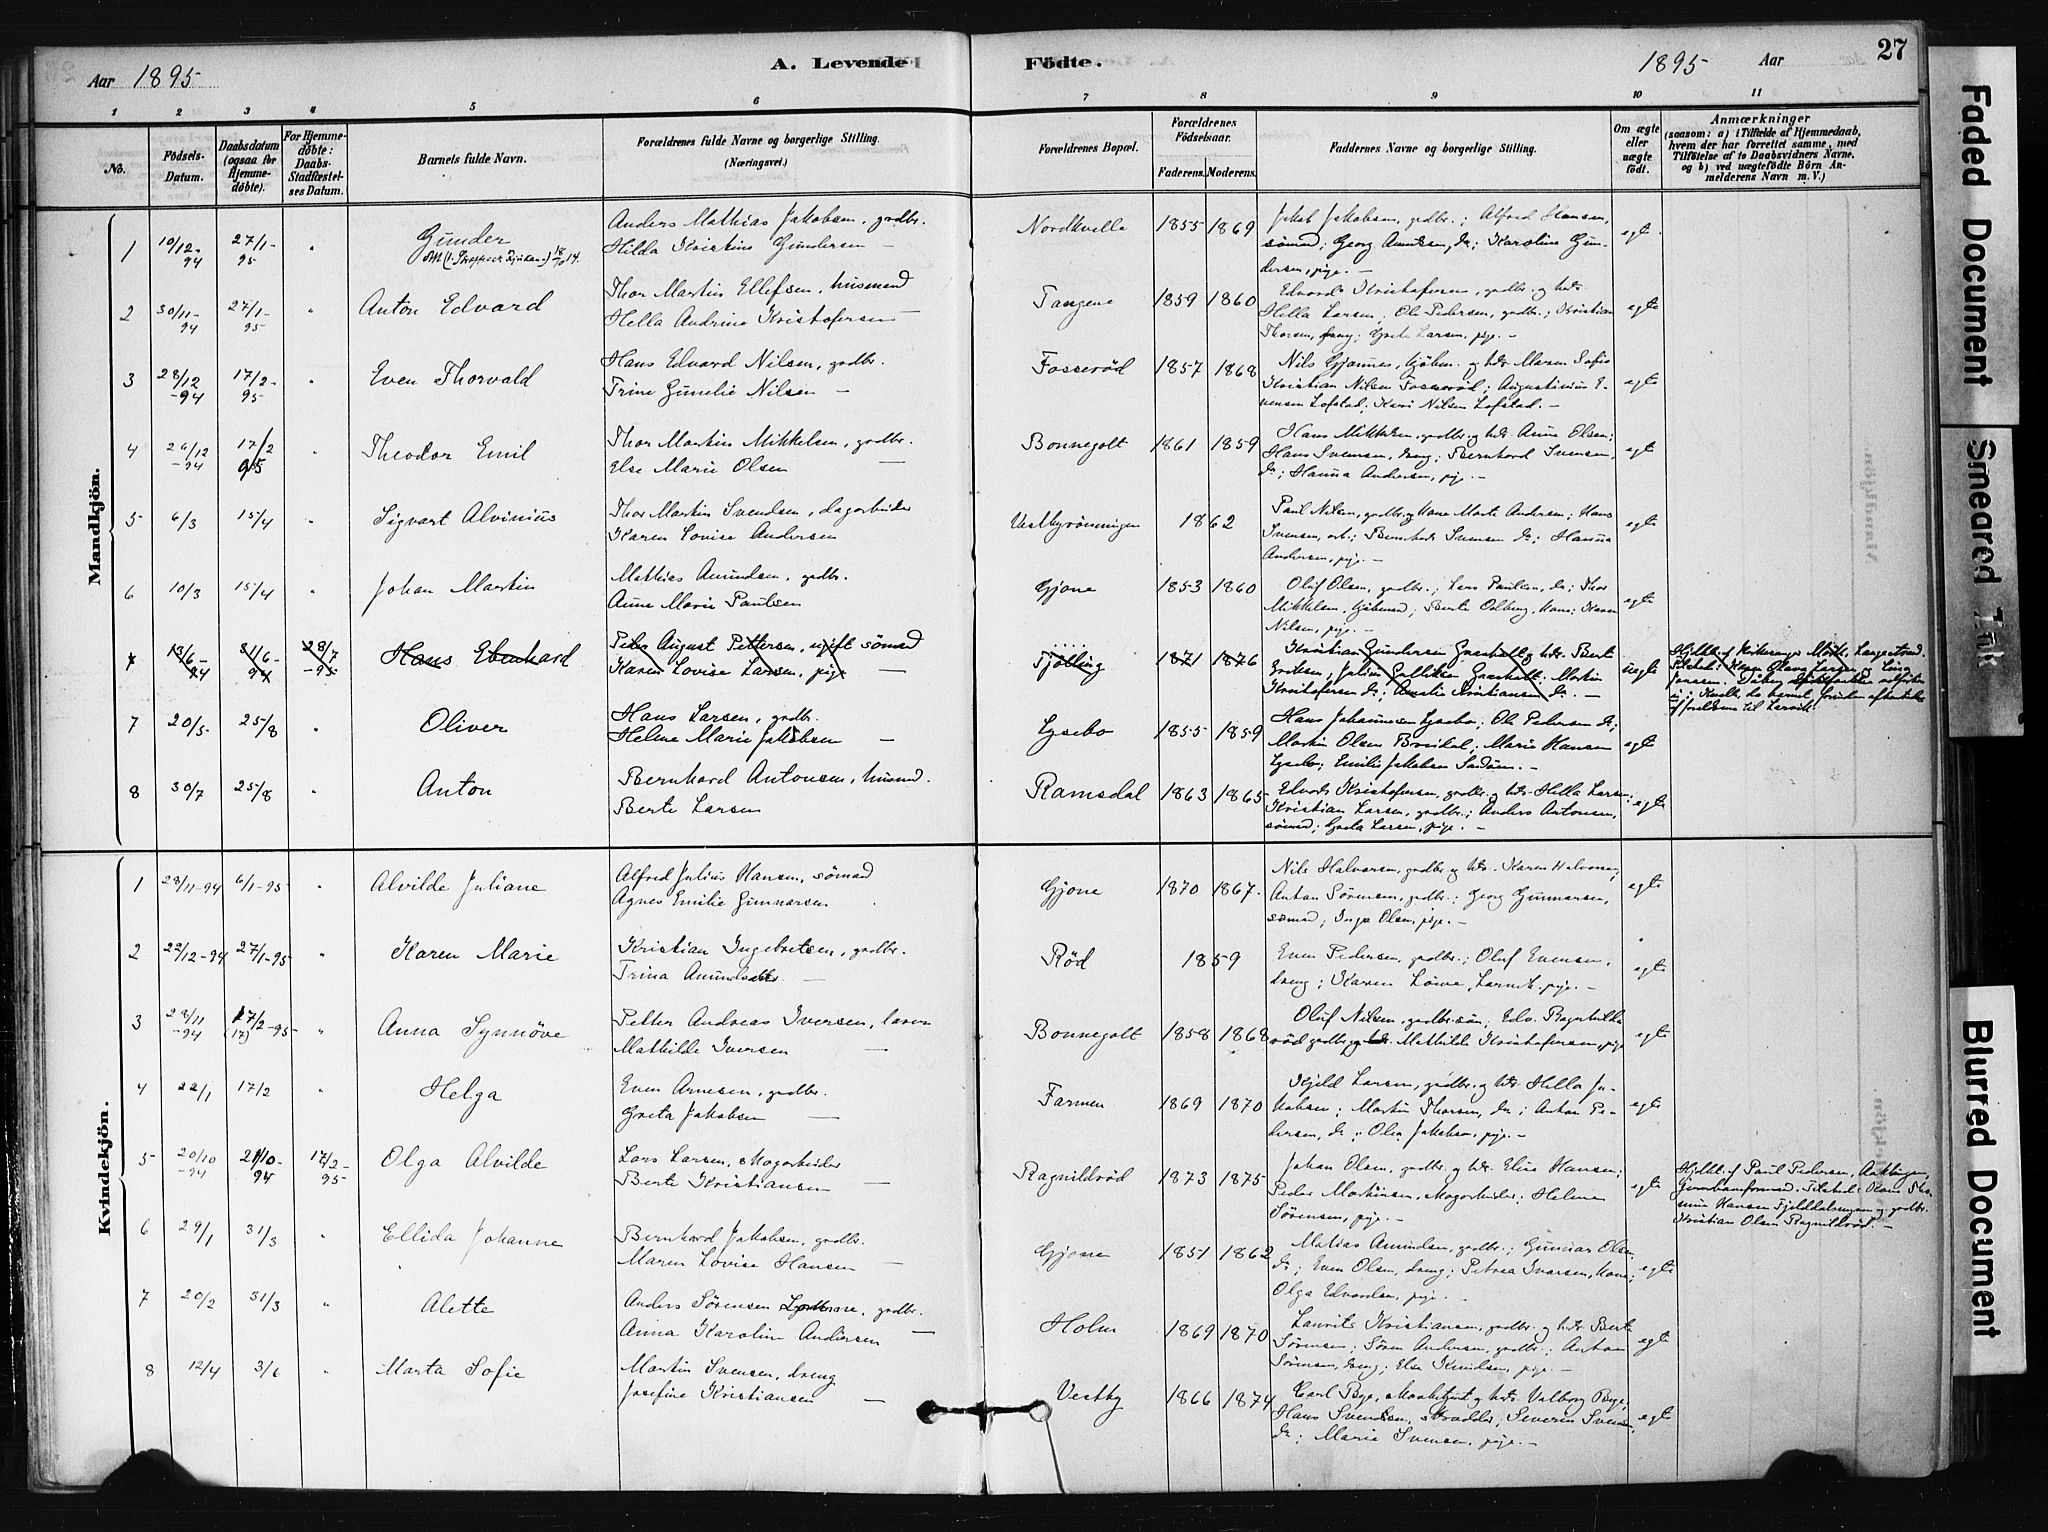 Aar 1895 A. Levende Födte. 1895 Aar 27
1 2 3 4 5 6 7 8 9 10 11
No. Födsels-Datum. Daabsdatum (ogsaa for Hjemme-döbte). For Hjemme-döbte: Daabs-Stadfæstel-ses Datum. Barnets fulde Navn. Forældrenes fulde Navne og borgerlige Stilling. (Næringsvei.) Forældrenes Bopæl. Forældrenes Födselsaar. Faderens. Moderens. Faddernes Navne og borgerlige Stilling. Om ægte eller uægte födt. Anmærkninger (saasom: a) i Tilfælde af Hjemmedaab, hvem der har forrettet samme, med Tilföielse af to Daabsvidners Navne, og b) ved uægtefödte Börn An-melderens Navn m. V.)
Mandkjön.
1 10/12-94 27/1-95 " Gunder Anders Mathias Jakobsen, grdbr. Hilda Kristine Gundersen — Nordkvelle 1855 1869 Jakob Jakobsen, grdbr.; Alfred Hansen, sömad; Georg Amundsen, do; Karoline Gundersen, pige. — egt.
2 30/11-94 27/1-95 " Anton Edvard Thor Martin Ellefsen, husmand Hella Andrine Kristofersen — Tangene 1859 1860 Edvard Kristofersen, grdbr. og hds. Hella Larsen; Ole Pedersen, grdbr.; Kristian Thorsen, dreng; Grete Larsen, pige. — egte
3 28/12-94 17/2-95 " Even Thorvald Hans Edvard Nilsen, grdbr. Trine Gunelie Nilsen — Fosserød 1857 1868 Nils Gjønnes, kjøbm. og hds Maren Sofie Kristian Nilsen Fosserød; Augustinius Evensen Lofstad; Kari Nilsen Lofstad. — egte
4 26/12-94 17/2 95 " Theodor Emil Thor Martin Mikkelsen, grdbr. Else Marie Olsen — Bonnegolt 1861 1859 Hans Mikkelsen, grdbr. og hds Anne Olsen; Hans Svensen, dreng; Bernhard Svensen, do; Hanna Andersen, pige. — egt
5 6/3 15/4 " Sigvart Alvinius Thor Martin Svendsen, dagarbeider Karen Lovise Andersen Vestbyrønningen 1862 Paul Nilsen, grdbr og Kone Marte Andersen; Hans Svensen, arb.; Bernhard Svensen do; Hanna Andersen, pige. — egte
6 10/3 15/4 " Johan Martin Mathias Amundsen, grdbr. Anne Marie Paulsen Gjone 1853 1860 Oluf Olsen, grdbr.; Lars Paulsen, do; Thor Mikkelsen, kjöbmand; Berte Odberg, Kone; Karen Nilsen, pige. — egte
7 13/6-94 31/6-94 28/7-95 Hans Ebenhard Peder August Pettersen, ugift sömad Karen Lovise Larsen, pige Tjölling 1871 1876 Kristian Gundersen hds Berte Eriksen; Julius; Martin Kristofersen do; Amalie Kristiansen do. — uegte
7 20/5 25/8 " Oliver Hans Larsen, grdbr. Helene Marie Jakobsen — Lysebo 1855 1859 Hans Johannesen Lysebo; Ole Pedersen do; Martin Olsen Breidal; Marie Hansen Lysebo; Emilie Jakobsen. — egt
8 30/7 25/8 " Anton Bernhard Antonsen, husmd. Berte Larsen Ramsdal 1863 1865 Edvard Kristofersen, grdbr. og hds Hella Larsen; Kristian Larsen, grdbr.; Anders Antonsen, sömad; Greta Larsen, pige. — egte
Kvindekjön.
1 28/11-94 6/1-95 " Alvilde Juliane Alfred Julius Hansen, sömad Agnes Emilie Gunnarsen Gjone 1870 1867. Nils Halvorsen, grdbr og hds. Karen Halvorsen; Anton Sörensen, grdbr.; Georg Gunnarsen, sömad; Inga Olsen, pige. — egte
2 22/12-94 27/1-95 " Karen Marie Kristian Ingebretsen, grdbr. Trina Amundsdtr. — Rød 1859 Even Pedersen, grdbr.; Oluf Evensen, dreng; Karen Löwe, Larvik, pige. — egte
3 28/11-94 17/2-95 (17) " Anna Synnöve Petter Andreas Iversen, Mathilde Iversen — Bonnegolt 1858 1868 Oluf Nilsen, grdbr.sön; Edv. Ragnhildsröd grdbr, og Mathilde Kristofersen, pige egte
4 22/1 17/2 " Helga Even Arnesen, grdbr. Greta Jakobsen — Farmen 1869 1870 Kjeld Larsen, grdbr. og hds Hella Jakobsen; Martin Thorsen, do; Anton Pedersen, do; Olea Jakobsen, pige. — egte
5 20/10-94 21/10-94 17/2-95 Olga Alvilde Lars Larsen, skogarbeider Berte Kristiansen — Ragnildrød 1873 1875 Johan Olsen, grdbr. og hds. Elise Hansen; Peder Martinsen, skogarbeider; Helene Sörensen, pige. — egte Hjdbt. af Paul Pedersen, Tilstede: Hansen og grdbr. Kristian Olsen Ragnildrød. —
6 29/1 31/3 " Ellida Johanne Bernhard Jakobsen, grdbr. Maren Lovise Hansen — Gjone 1851 1862 Matias Amundsen, grdbr.; Gunnar Olsen, do; Even Olsen, dreng; Petrea Ivarsen, Kone; Olga Edvardsen, pige. — egte
7 20/2 31/3 " Alette Anders Sörensen, grdbr. Anna Karoline Andersen — Holm 1869 1870 Laurits Kristiansen, grdbr. og hds Berte Sörensen; Sören Andersen, grdbr.; Anton Sörensen, dreng; Else Knudsen, pige. — egt
8 12/4 3/6 " Marta Sofie Martin Svensen, dreng Josefine Kristiansen — Vestby 1866 1874 Carl Bye, og hds Valborg Bye; Hans Svendsen, skrædder; Severin Svensen do; Marie Svensen, pige. — egt
Faded Document
Smeared Ink
Blurred Document